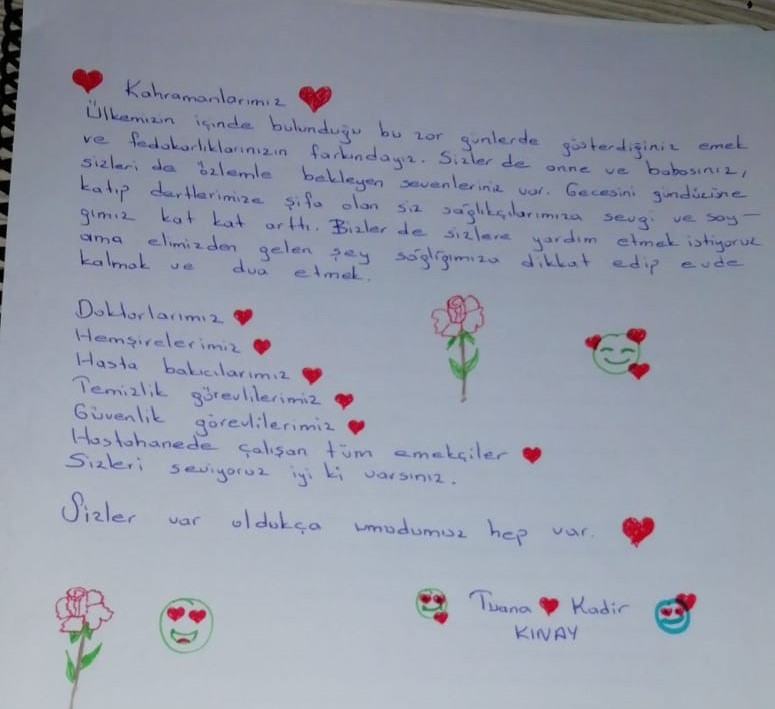 Kahramanlarımız
Ülkemizin içinde bulunduğu bu zor günlerde gösterdiğiniz emek
ve fedakarlıklarınızın farkındayız. Sizler de anne ve babasınız,
sizleri de özlemle bekleyen sevenleriniz var. Gecesini gündüzüne
katıp dertlerimize şifa olan siz sağlıkçılarımıza sevgi ve say-
gımız kat kat arttı. Bizler de sizlere yardım etmek istiyoruz
ama elimizden gelen şey sağlığımıza dikkat edip evde
kalmak ve dua etmek.
Doktorlarımız
Hemşirelerimiz
Hasta bakıcılarımız
Temizlik görevlilerimiz
Güvenlik görevlilerimiz
Hastahanede çalışan tüm emekçiler
Sizleri seviyoruz iyi ki varsınız.
Sizler var oldukça umudumuz hep var.
Tuana Kadir
KINAY